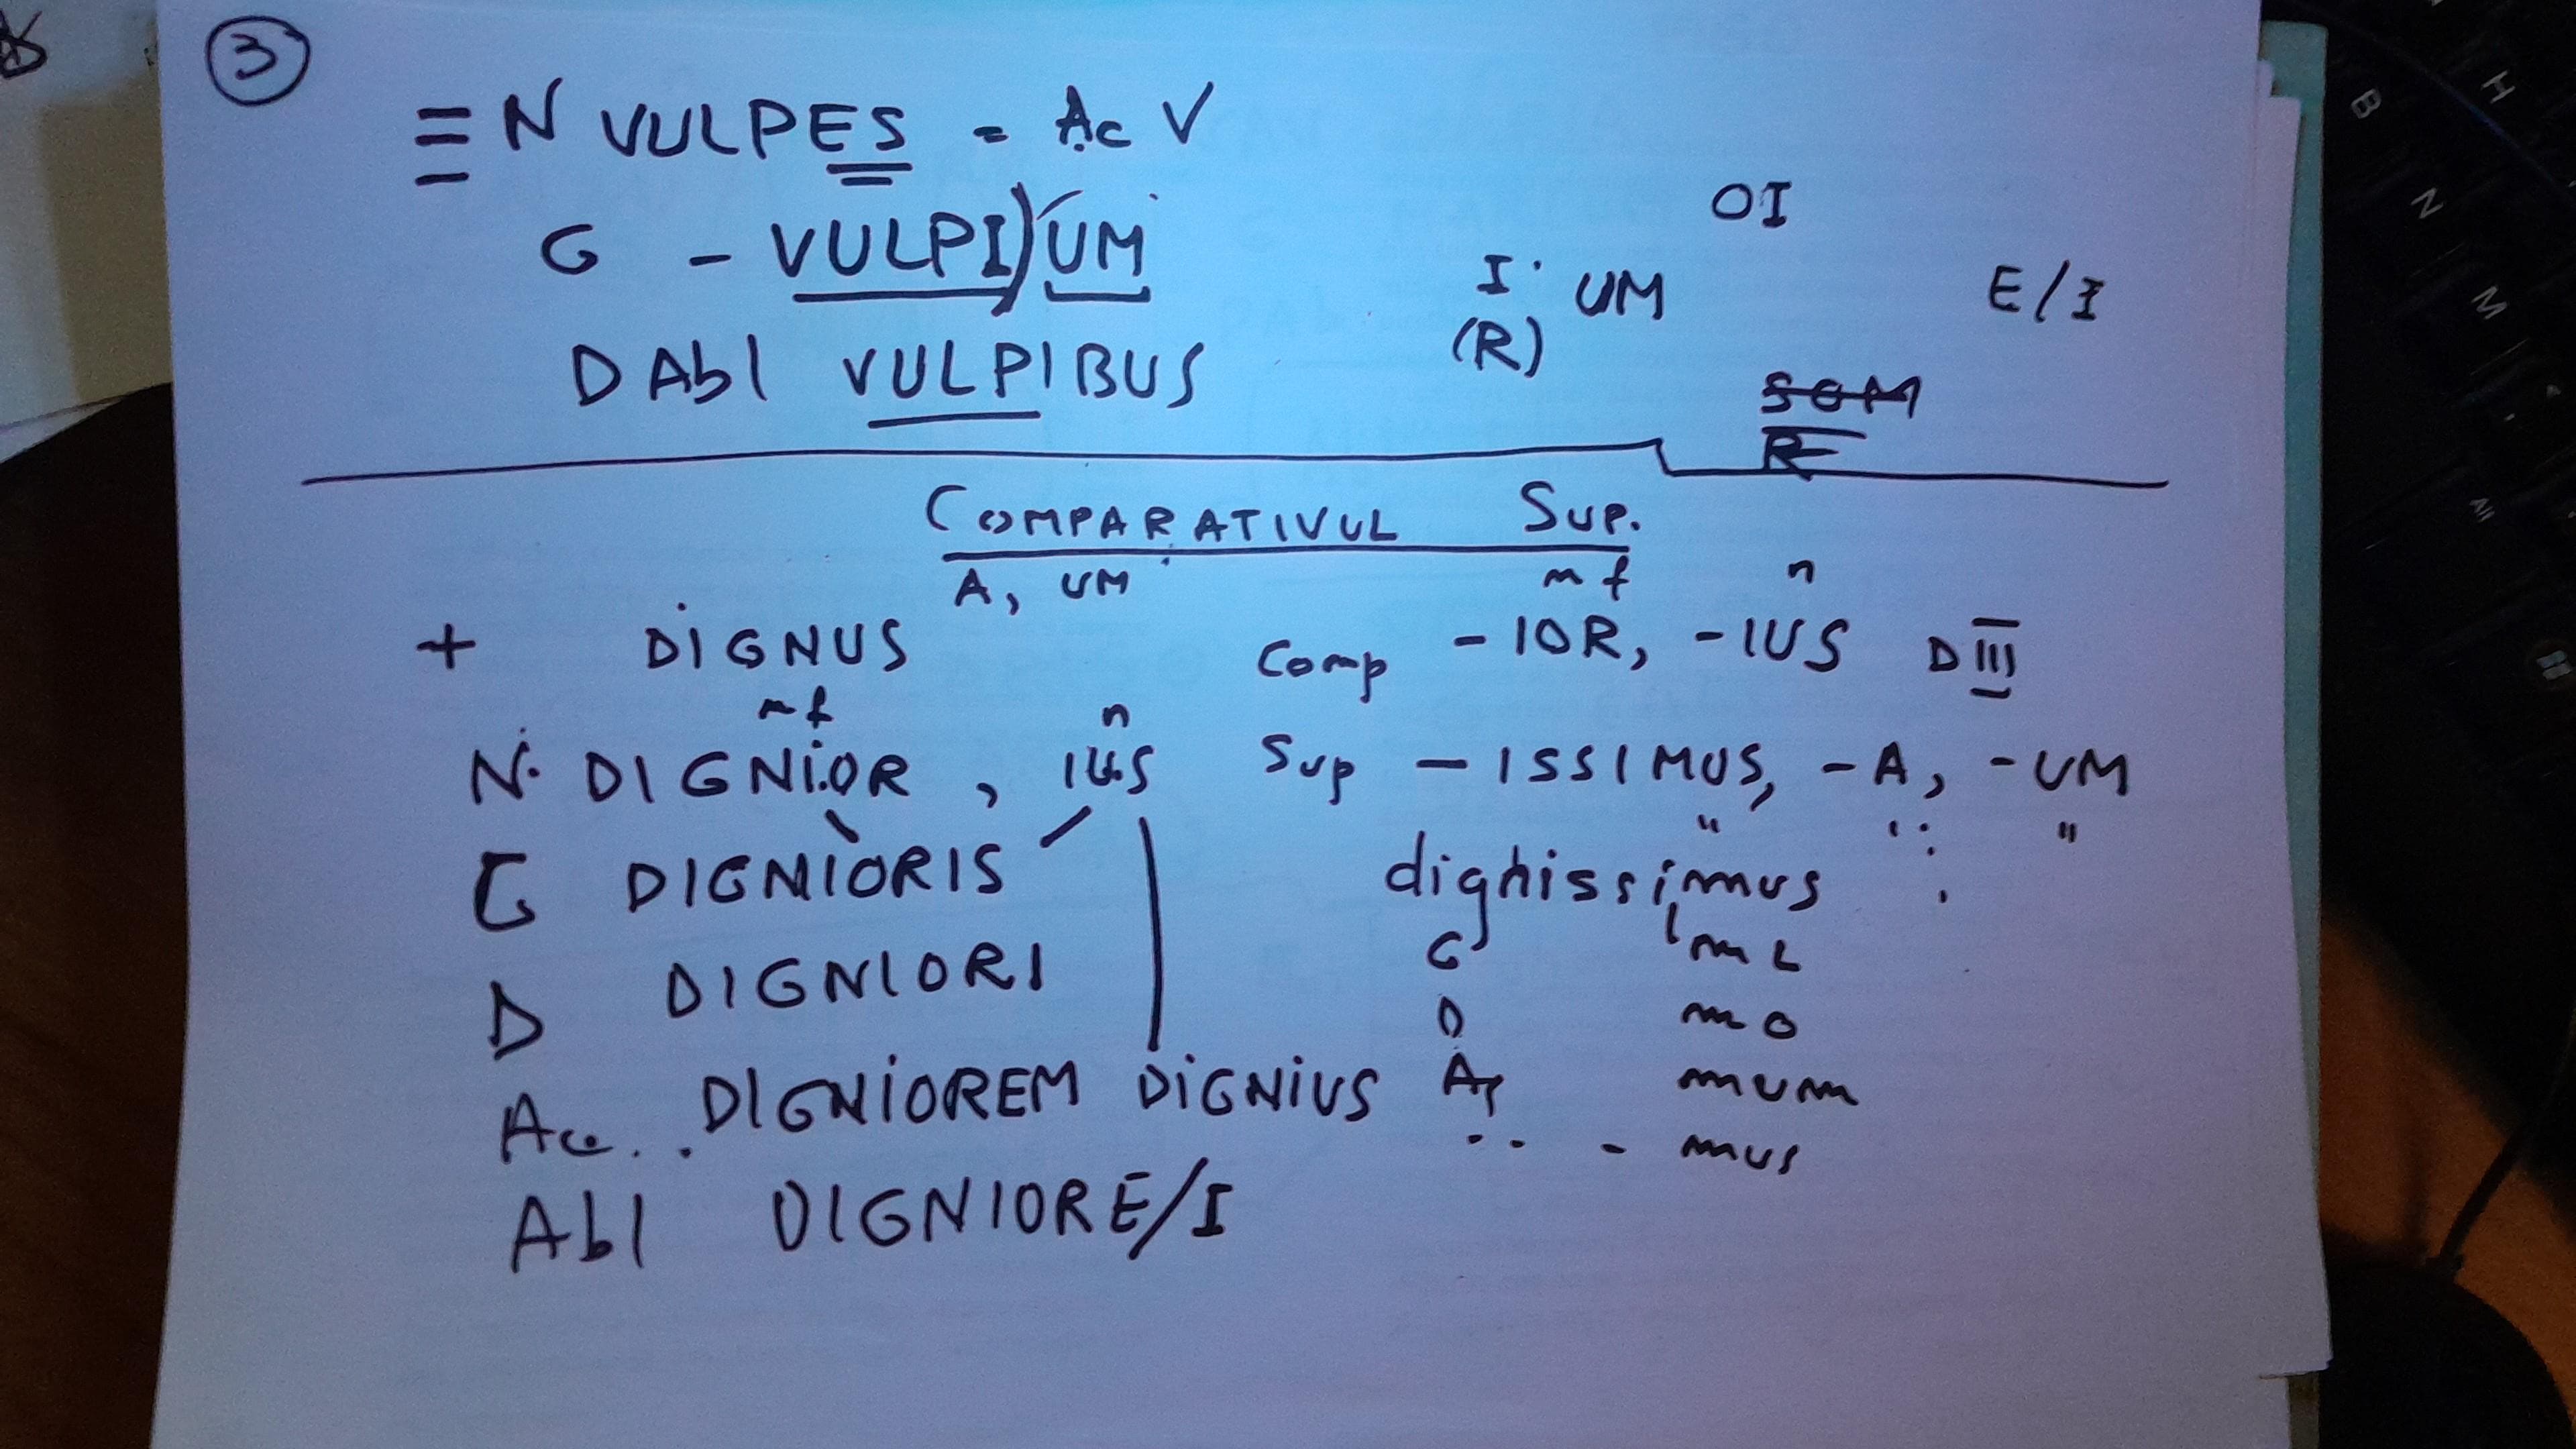 3
N VULPES = Ac V
G - VULPI) UM
OI
I UM E/I
(R)
D Abl VULPIBUS
SOM
RE
COMPARATIVUL SUP.
A, UM m f n
+ DIGNUS Comp - IOR, - IUS D III
m f n
N. DIGNIOR, IUS Sup - ISSIMUS, - A, - UM
G DIGNIORIS dignissimus
G mi
D DIGNIORI
D mo
Acc.. DIGNIOREM DIGNIUS A mum
.. - mus
Abl DIGNIORE/I